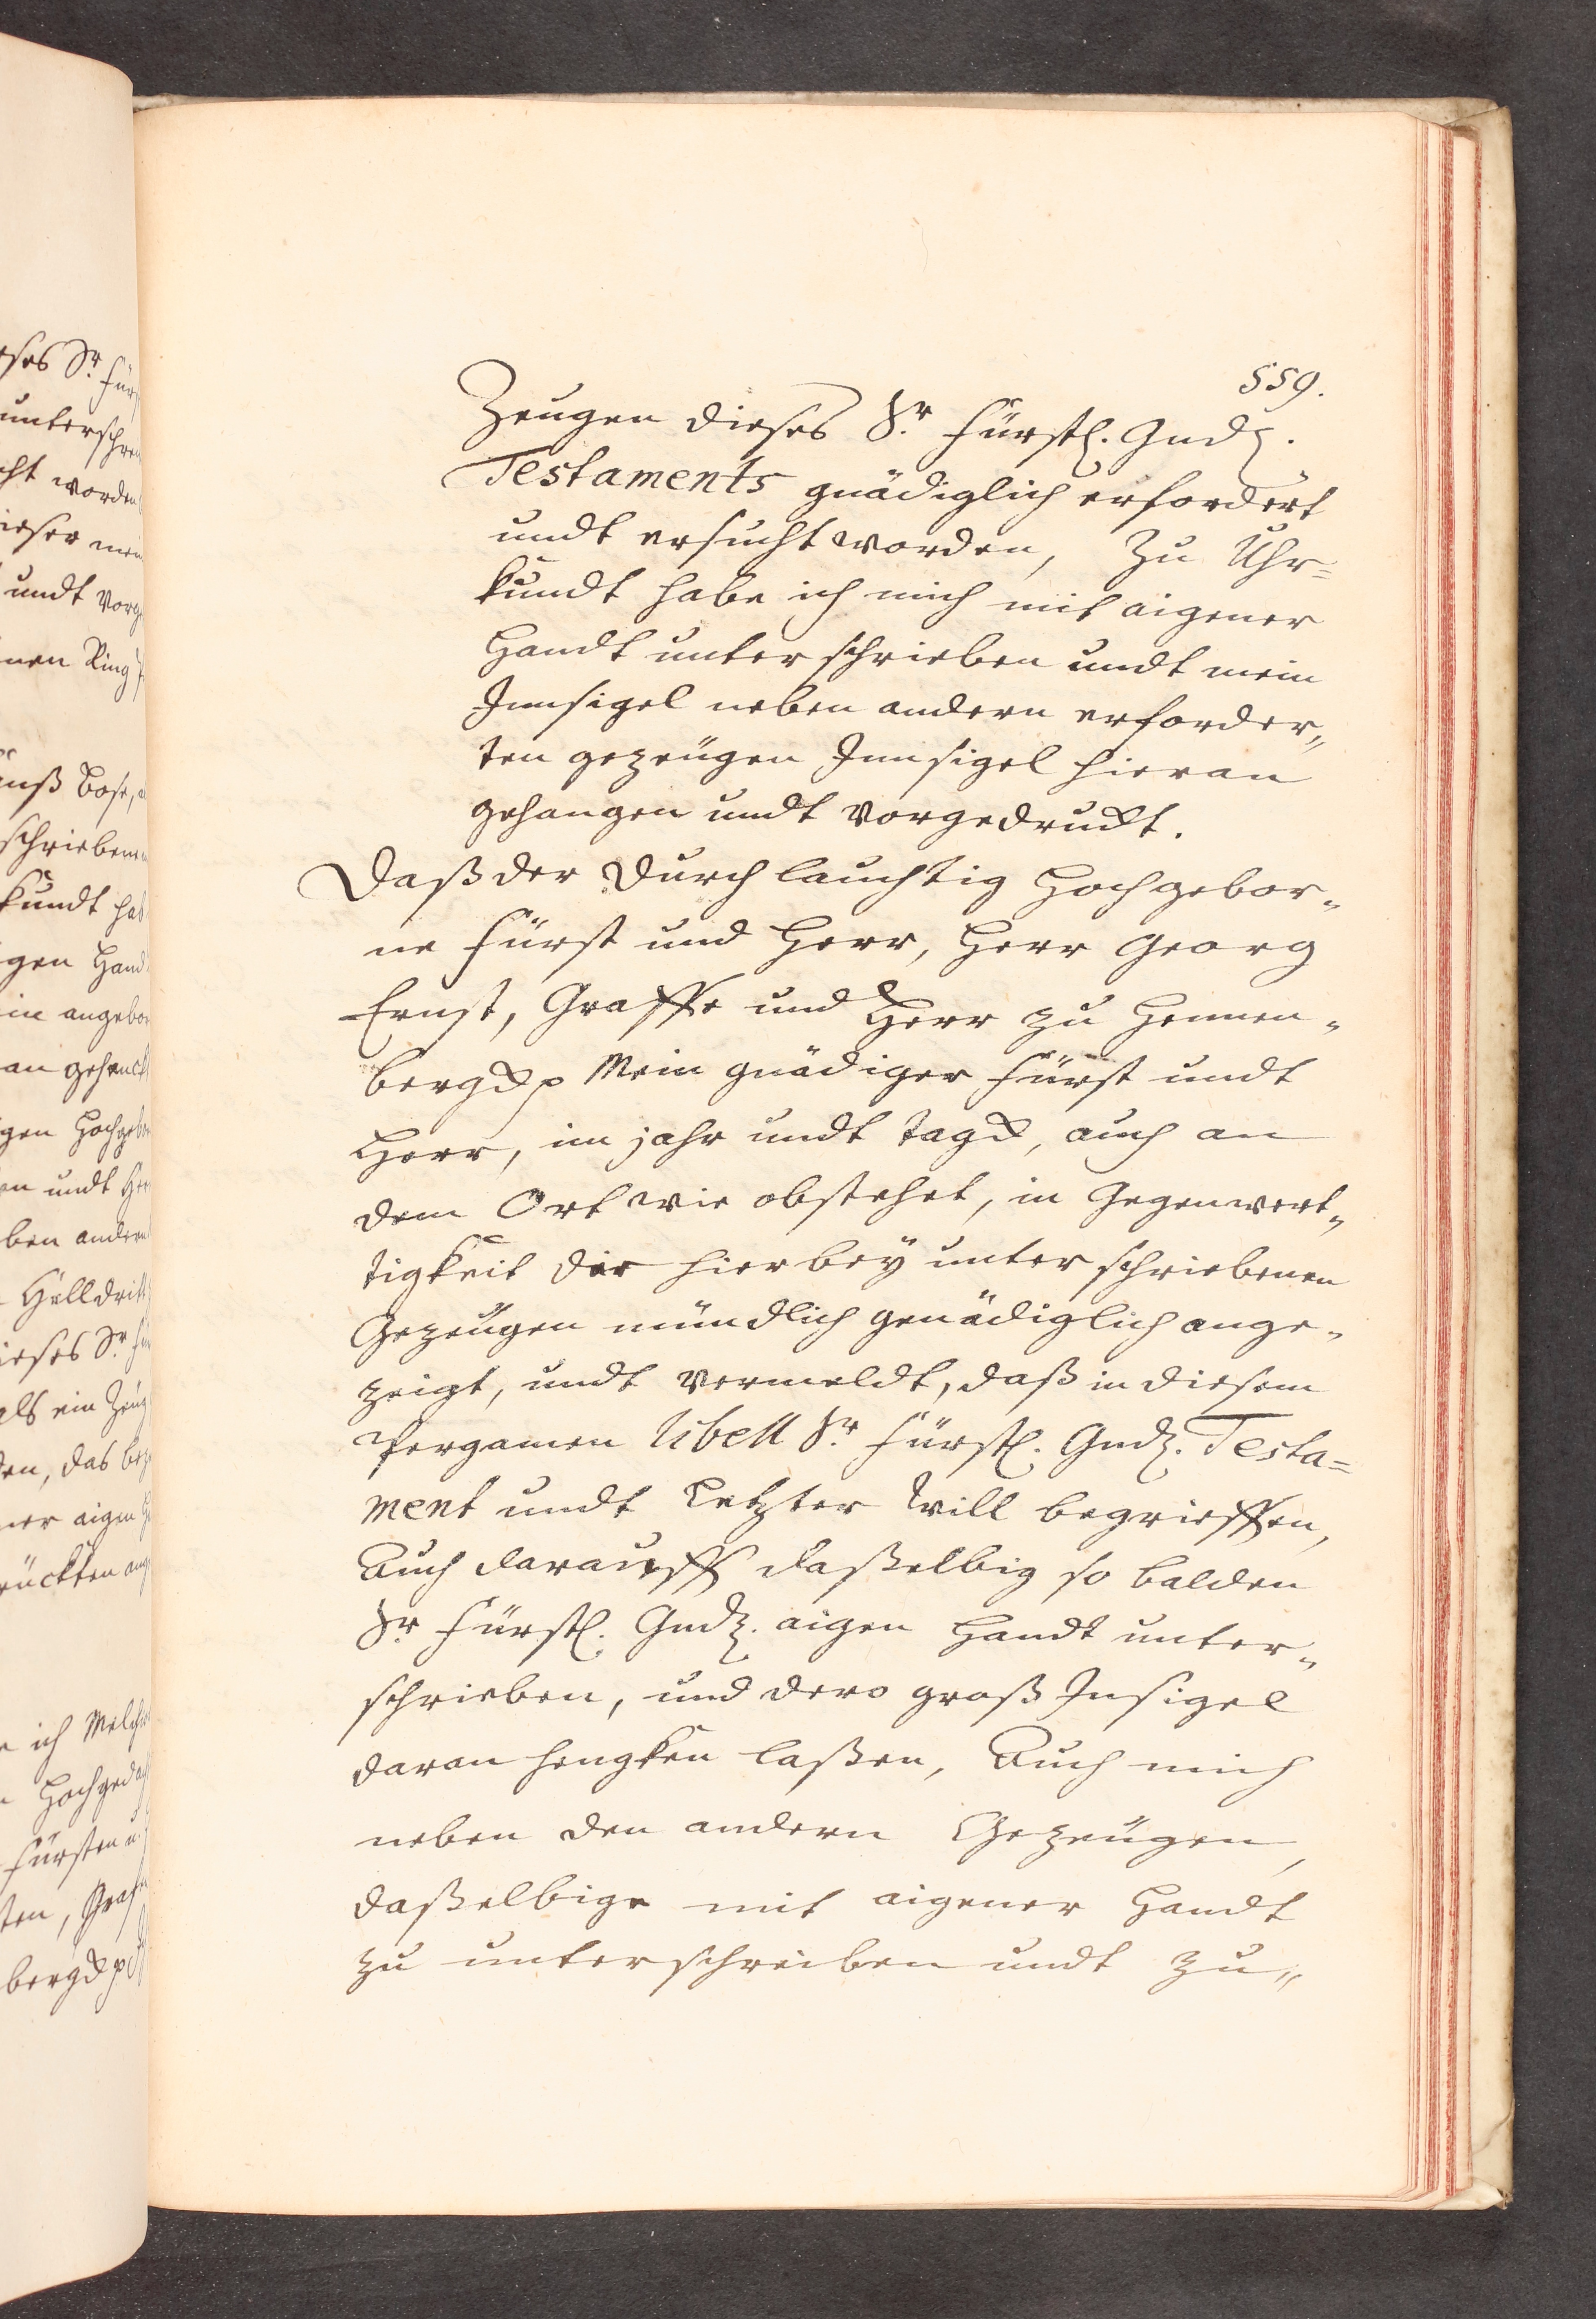 559.
Zeugen dieses Sr. Fürstl. Gndl.
Testaments gnädiglich erfordert
undt ersucht worden, Zu Uhr=
kundt habe ich mich mit aigener
Handt unterschrieben undt mein
Innsigel neben andern erforder„
ten gezeügen Innsigel hieran
gehangen undt vorgedruckt.
Daß der Durchlauchtig Hochgebor„
ne Fürst und Herr, Herr Georg
Ernst, Graffe und Herr zu Hennen„
berg Mein gnädiger Fürst undt
Herr, im jahr undt tag, auch an
dem Ort wie obstehet, in Gegenwert„
tigkeit der hierbey unterschriebenen
Gezeügen mündlich genädiglich ange„
zeigt, undt vermeldt, daß in diesem
Pergamen libell Sr. Fürstl. Gndl. Testa=
ment undt Letzter Will begrieffen,
Auch darauff daßelbig so balden
Sr. Fürstl. Gndl. aigen Handt unter„
schrieben, und dero groß Insigel
daran hengken laßen, Auch mich
neben den andern Gezeügen,
daßelbige mit aigener Handt
zu unterschreiben undt zu„
unterschrei
worden
undt
Ring
schrieben
kundt
Handt
undt
Helldritt
ich
Fürsten